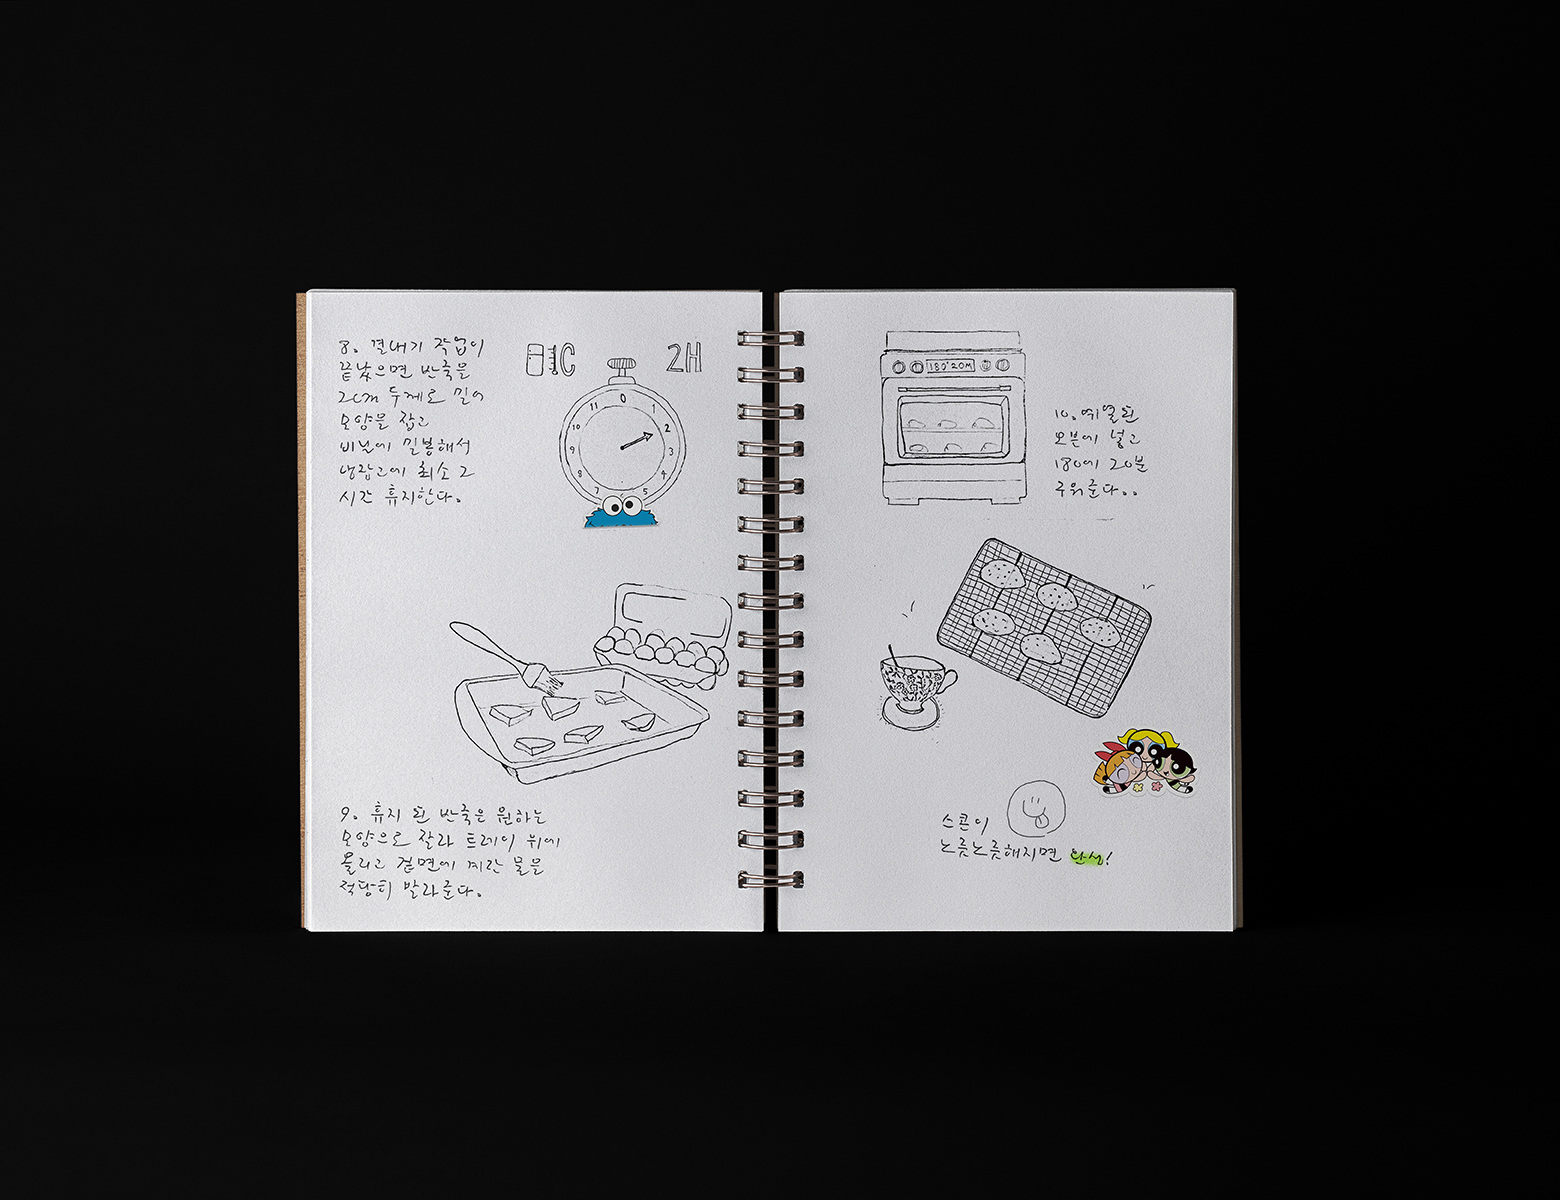 8. 결내기 작업이
끝났으면 반죽을
2cm 두께로 밀어
모양을 잡고
비닐에 밀봉해서
냉장고에 최소 2
시간 휴지한다.
1°C
2H
0
1
2
3
4
5
7
8
9
10
11
9. 휴지 된 반죽은 원하는
모양으로 잘라 트레이 위에
올리고 겉면에 계란 물을
적당히 발라준다.
180° 20M
10. 예열된
오븐에 넣고
180에 20분
구워준다..
스콘이
노릇노릇해지면 완성!